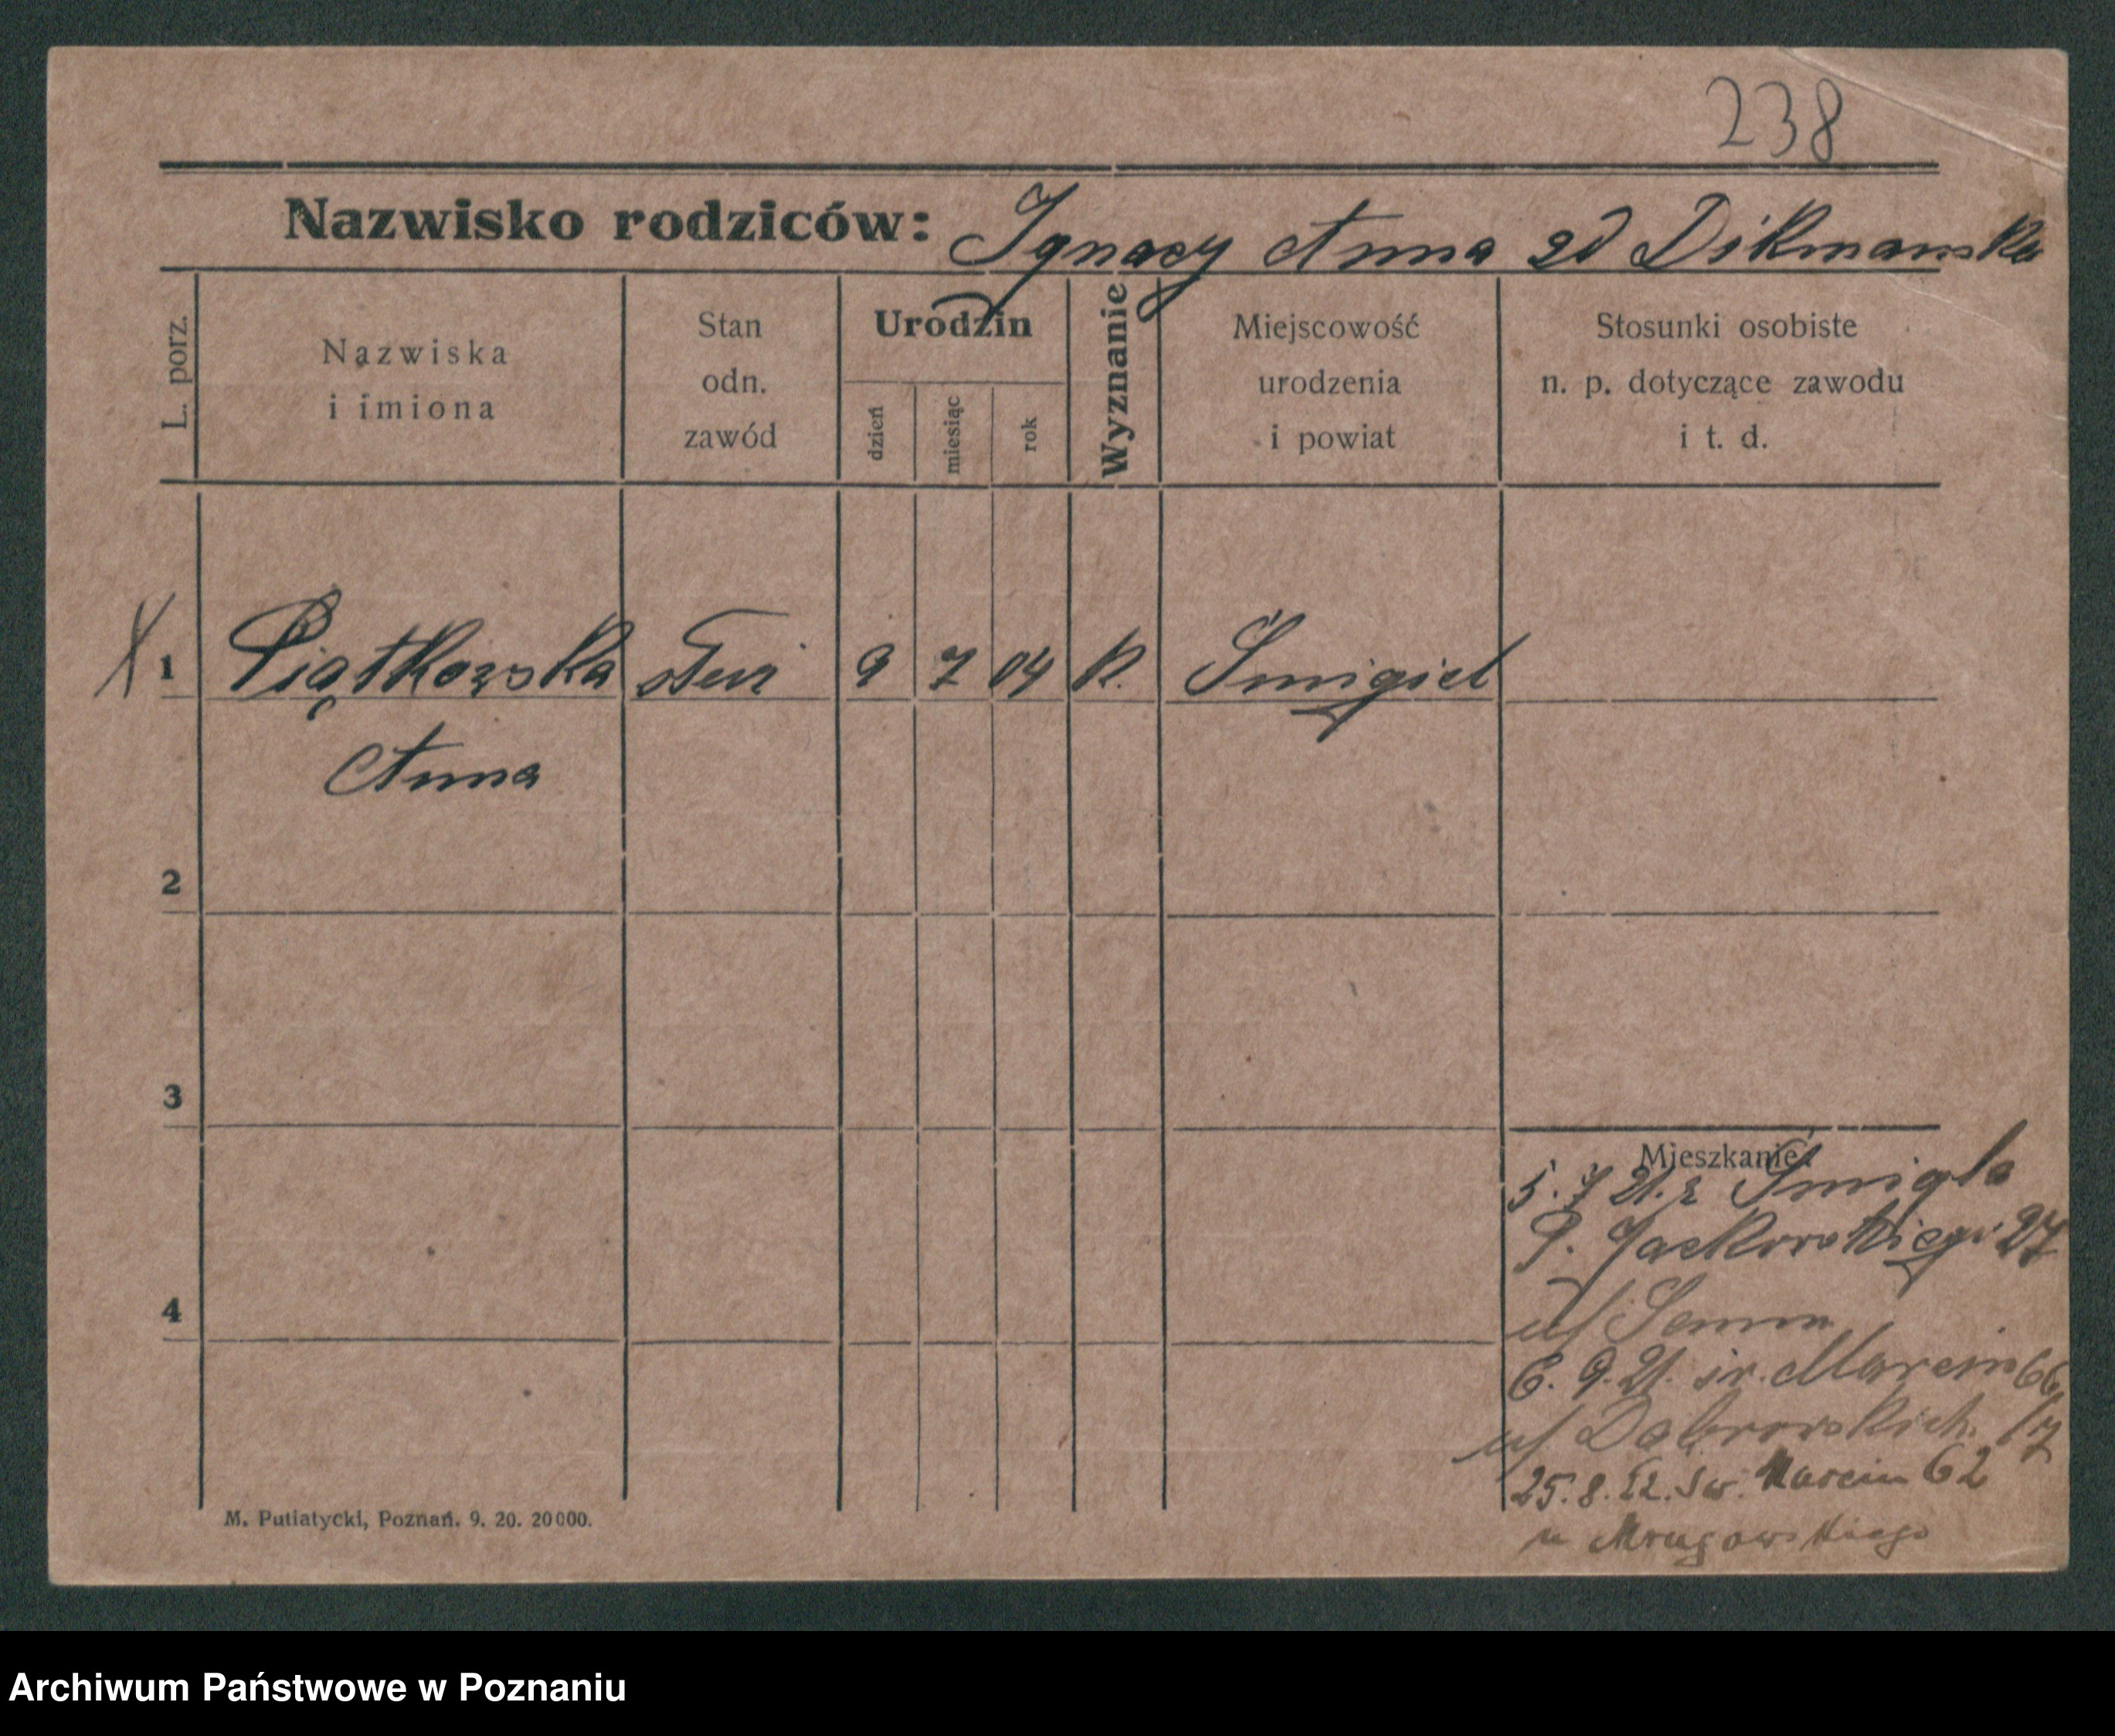 238
Nazwisko rodziców: Ignacy Anna zd Dikmanska
L. porz.
Nazwiska
i imiona
Stan
odn.
zawód
Urodzin
dzień
miesiąc
rok
Wyznanie
Miejscowość
urodzenia
i powiat
Stosunki osobiste
n. p. dotyczące zawodu
i t. d.
X 1 Piątkowska 9 7 04 k. Śmigiel
Anna
2
3
4
Mieszkanie:
5. 7 21. z Śmigla
P. Jackowskiego 27
u/
6. 9. 21. św. Marcin 66/
u/ Dąbrowskich. 17
25. 8. 22. św. Marcin 62
u Mrugowskiego
M. Putiatycki, Poznań. 9. 20. 20000.
Archiwum Państwowe w Poznaniu